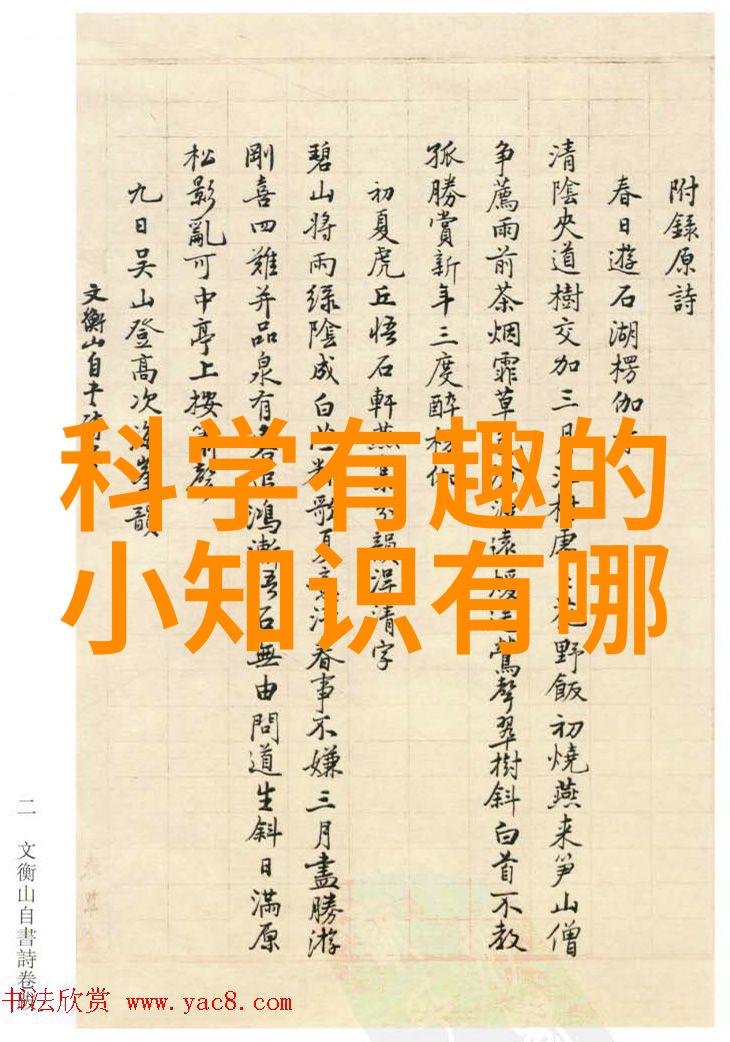 附錄原詩
春日遊石湖楞伽
清陰央道樹交加三月 野飯初燒燕来笋山僧
争薦雨前茶烟霏草 遠 鶯聲翠樹斜白首不教
孤勝賞新年三度醉
初夏虎丘悟石軒燕 韻 清字
碧山將雨綠陰成白 歌 春事不嫌三月盡勝游
剛喜四難并品泉有 鴻漸 石無由問道生斜日滿原
松影亂可中亭上按 聲
九日吳山登高次 韻
文衡山自
科学有趣的
小知识有哪
二 文衡山自書詩卷
书法欣赏 www.yac8.com